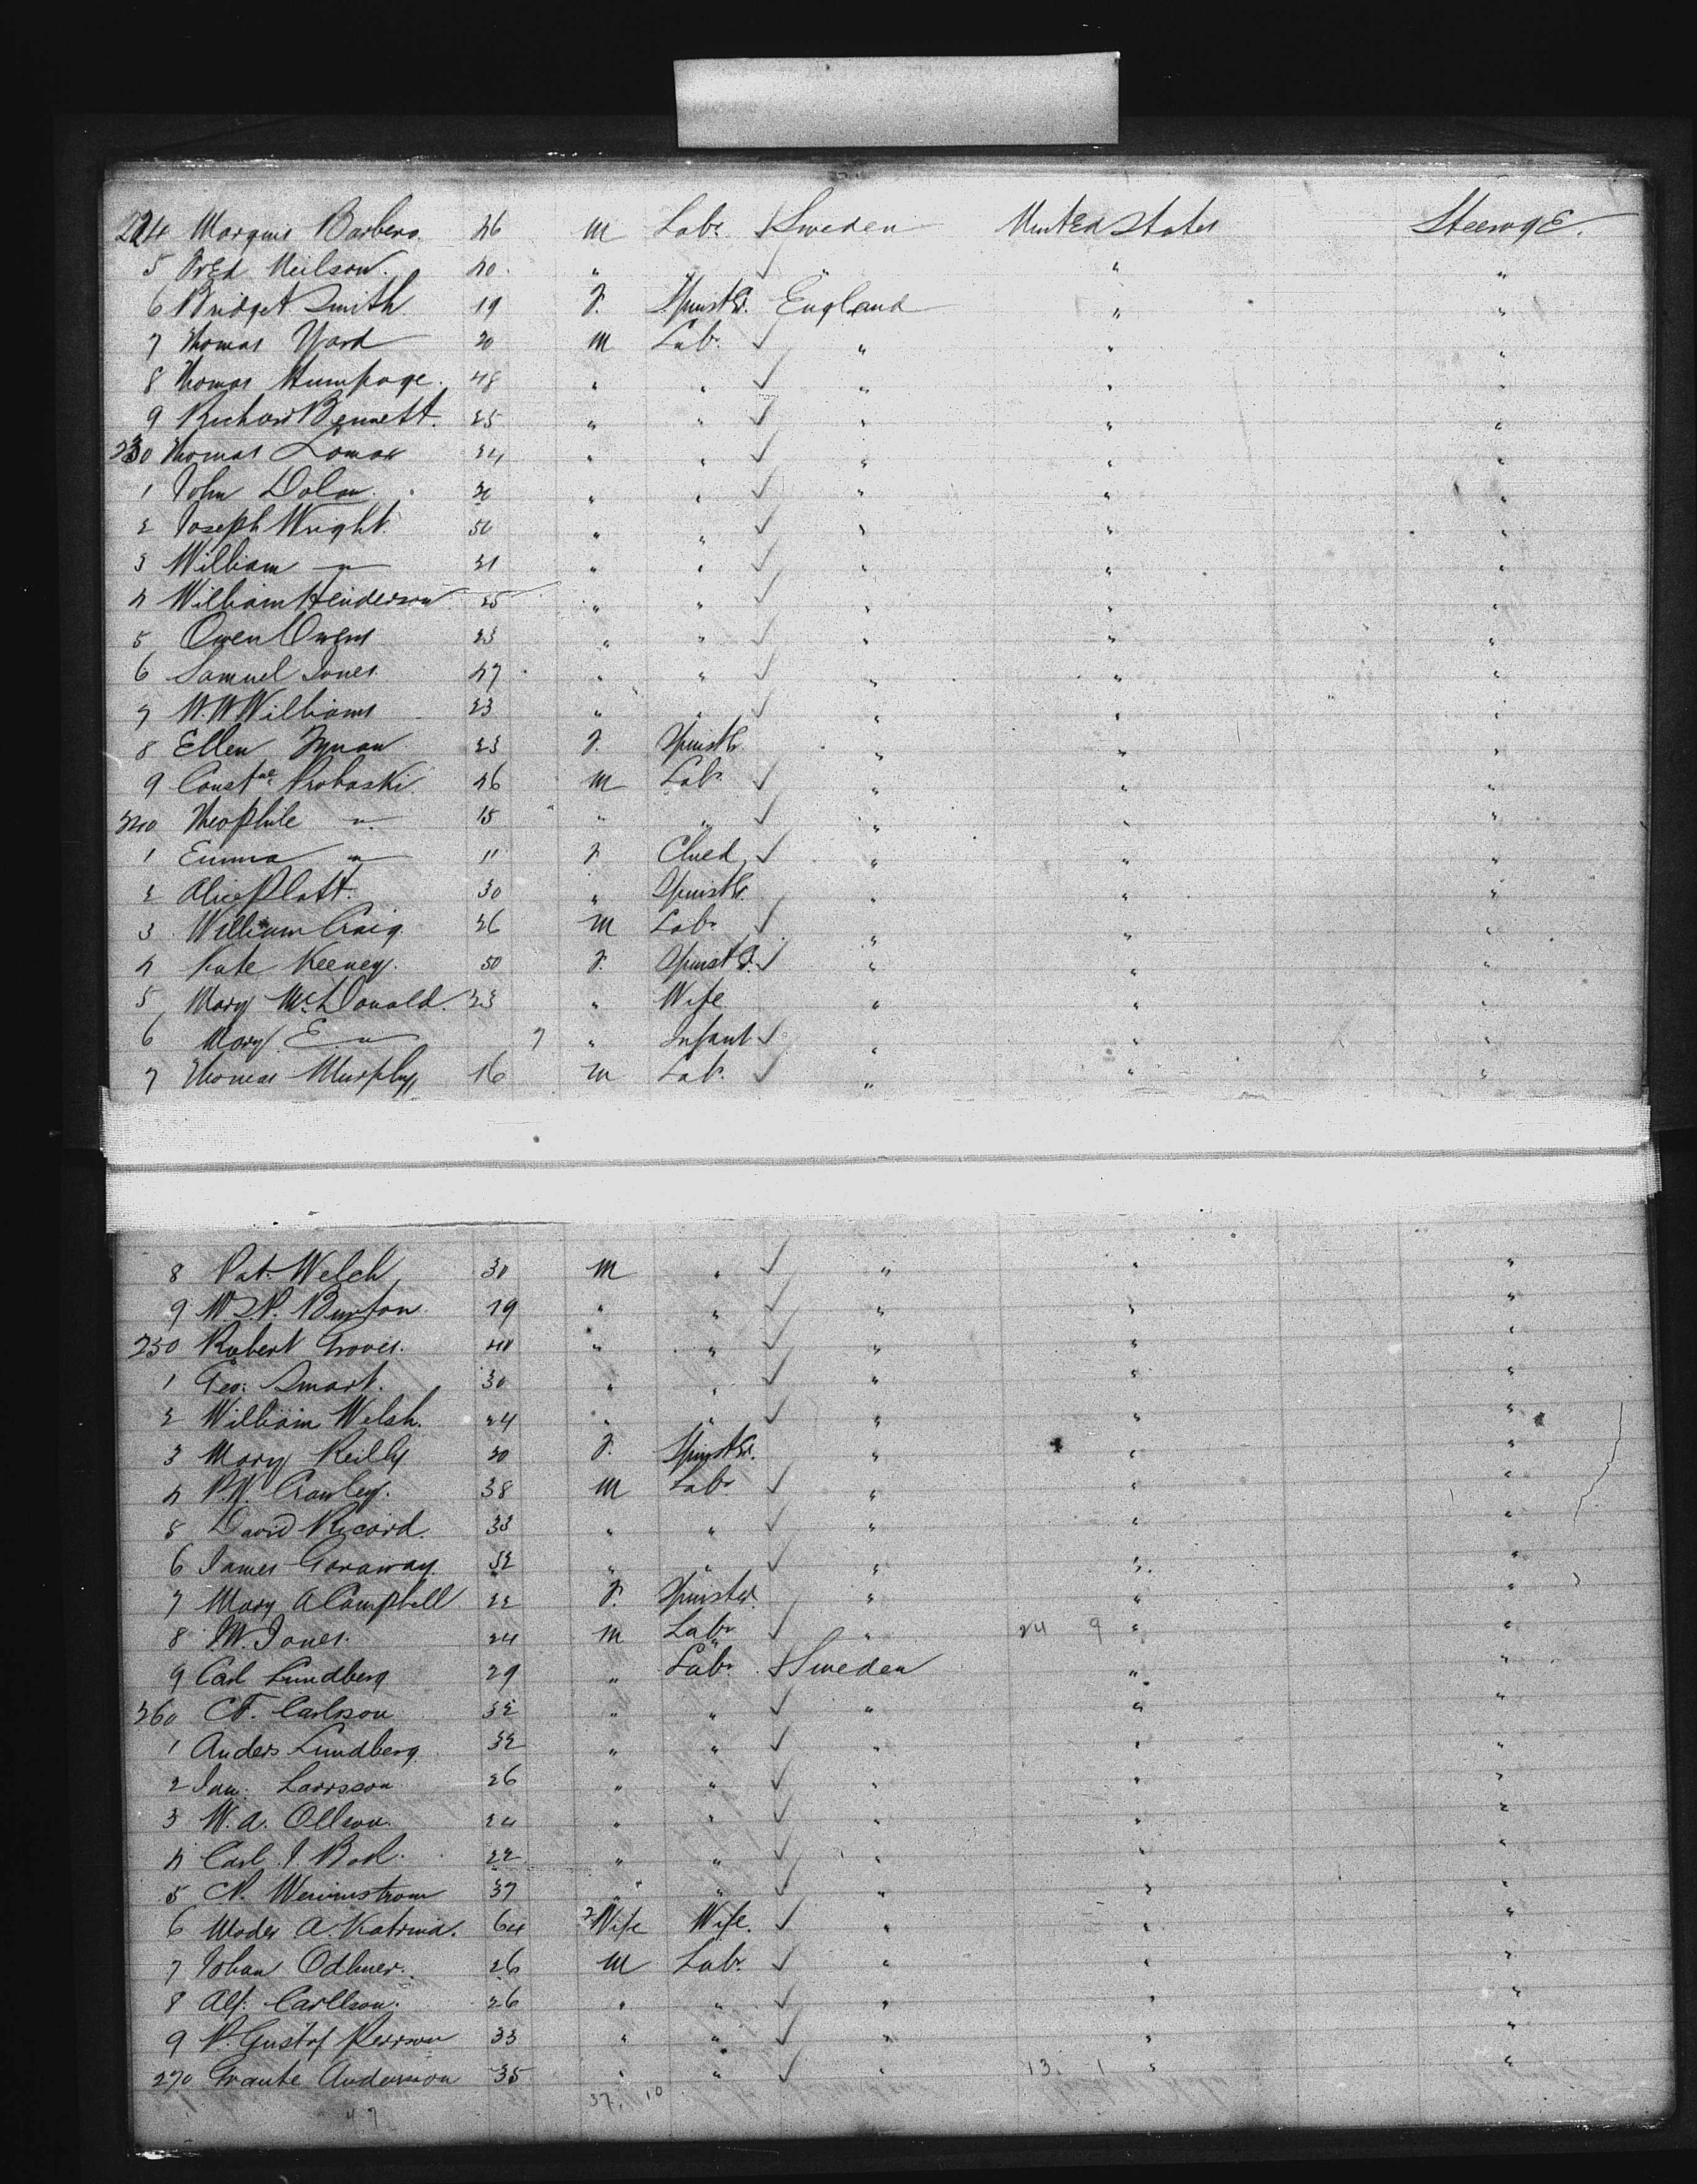 224 Marquis Barbero 26 m Labr Sweden United States Steerage.
5 Fred Neilson. 20 " " " " "
6 Bridget Smith 19 F. Spinstr. England " "
7 Thomas Yard 20 m Labr " " "
8 Thomas Humpage. 48 " " " " "
9 Richard Bennett. 25 " " " " "
230 Thomas Lomax 24 " " " " "
1 John Dolan. " " " " "
2 Joseph Wright. 50 " " " " "
3 William " 21 " " " " "
4 William Henderson 25 " " " " "
5 Owen Owens 23 " " " " "
6 Samuel Jones 47 " " " " "
7 W. W Williams 23 " " " " "
8 Ellen 23 F. Spinstr. " " "
9 Constne Probaski 46 m Labr " " "
240 Theophile " 15 " " " " "
1 Emma " 11 F Child " " "
2 Alice Platt. 30 " Spinstr. " " "
3 William Craig 26 m Labr " " "
4 Kate Keeney. 50 F. Spinstr. " " "
5 Mary McDonald. 23 " Wife " " "
6 Mary E. " 7 " Infant " " "
7 Thomas Murphy 16 m Labr. " " "
8 Pat. Welch 30 m " " " "
9 W. P. Burton. 19 " " " " "
250 Robert Groves. 40 " " " " "
1 Geo: Smart. 30 " " " " "
2 William Welsh. 24 " " " " "
3 Mary Reilly 20 F. Spinstr. " " "
4 P. Crowley. 38 m Labr " " "
5 David Ricord. 33 " " " " "
6 James Garaway. 32 " " " " "
7 Mary A Campbell 22 F. Spinster. " " "
8 J. W. Jones. 24 m Labr " 24 9 " "
9 Carl Lundberg 29 " Labr. Sweden " "
260 C. F. Carlsson 32 " " " " "
1 Anders Lundberg 32 " " " " "
2 Jan: Larsson 26 " " " " "
3 W. A. Ollson. 24 " " " " "
4 Carl J. 22 " " " " "
5 C. Wennstrom 37 " " " " "
6 Moder A. Katrina. 64 Wife Wife. " " "
7 Johan Odhner. 26 m Labr. " " "
8 Alf. Carllson. 26 " " " " "
9 P. Gustaf Persson 33 " " " " "
270 Grante Anderson 35 " " " 13. 1 " "
37. 10
47